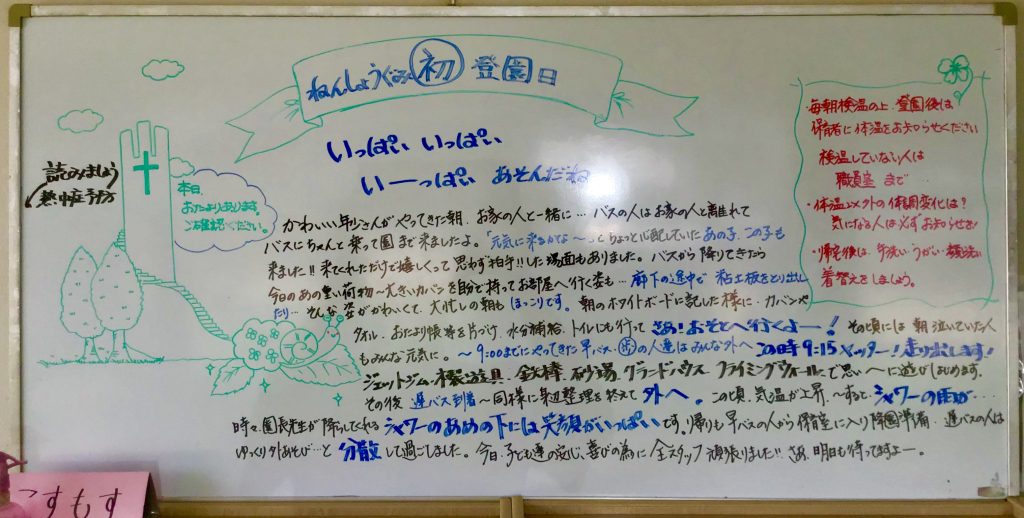 ねんしょうぐみ 初 登園日
いっぱい いっぱい
いーっぱい あそんだね
読みましょう
熱中症予防
本日、
おたよりあります。
ご確認ください。
・毎朝検温の上、登園後は、
保育者に体温をお知らせください
検温していない人は
職員室まで…
・体温以外の体調変化は?
気になる人は必ずお知らせを!
・帰宅後は、手洗い・うがい・
着替えをしましょう。
かわいい年少さんがやってきた朝、お家の人と一緒に… バスの人はお家の人と離れて
バスにちゃんと乗って園まで来ましたよ。「元気に来るかな〜」とちょっと心配していたあの子、この子も
来ました!! 来てくれただけで嬉しくって思わず拍手!!した場面もありました。バスから降りてきたら
今日のあの重い荷物〜大きいカバンを自分で持ってお部屋へ行く姿も… 廊下の途中で 粘土板をとり出し
たり… そんな姿がかわいくて、大忙しの朝も ほっこりです。 朝のホワイトボードに記した様に、カバンや
タオル、おたより帳等を片づけ、水分補給、トイレにも行って さあ!おそとへ行くよー! その頃には 朝 泣いていた人
もみんな元気に。 〜9:00までにやってきた早バス、の人達はみんな外へ この時 9:15 ヤッター!走り出します!
ジェットジム・複遊具、鉄棒、砂場、グランドハウス、クライミングウォール、で思い〜に遊びはじめます。
その後 遅バス到着〜同様に身辺整理を終えて 外へ。 この頃、気温が上昇、〜すると… シャワーの雨が…
時々、園長先生が降らしてくれる シャワーのあめの下には笑顔がいっぱい です。帰りも早バスの人から保育室に入り降園準備、遅バスの人は
ゆっくり外あそび…と 分散 して過ごしました。今日、子ども達の安心、喜びの為に 全スタッフ 頑張りました!! さあ、明日も待ってますよー。
こすもす